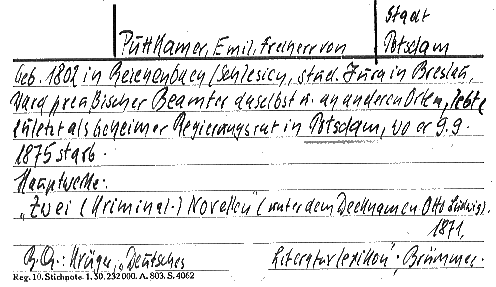 Stadt
Puttkamer, Emil, Freiherr von Potsdam
Geb. 1802 in Reichenbach / Schlesien, stud. Jura in Breslau,
Ward preußischer Beamter daselbst u. an anderen Orten, lebte
zuletzt als Geheimer Regierungsrat in Potsdam, wo er 9.9.
1875 starb.
Hauptwerke:
„Zwei (Kriminal-) Novellen" (unter dem Decknamen Otto Ludwig).
1871,
Krüger, „Deutsches Literaturlexikon". Brümmer.
Reg. 10. Stichnote. 1. 30. 232 000. A. 803. S. 4062